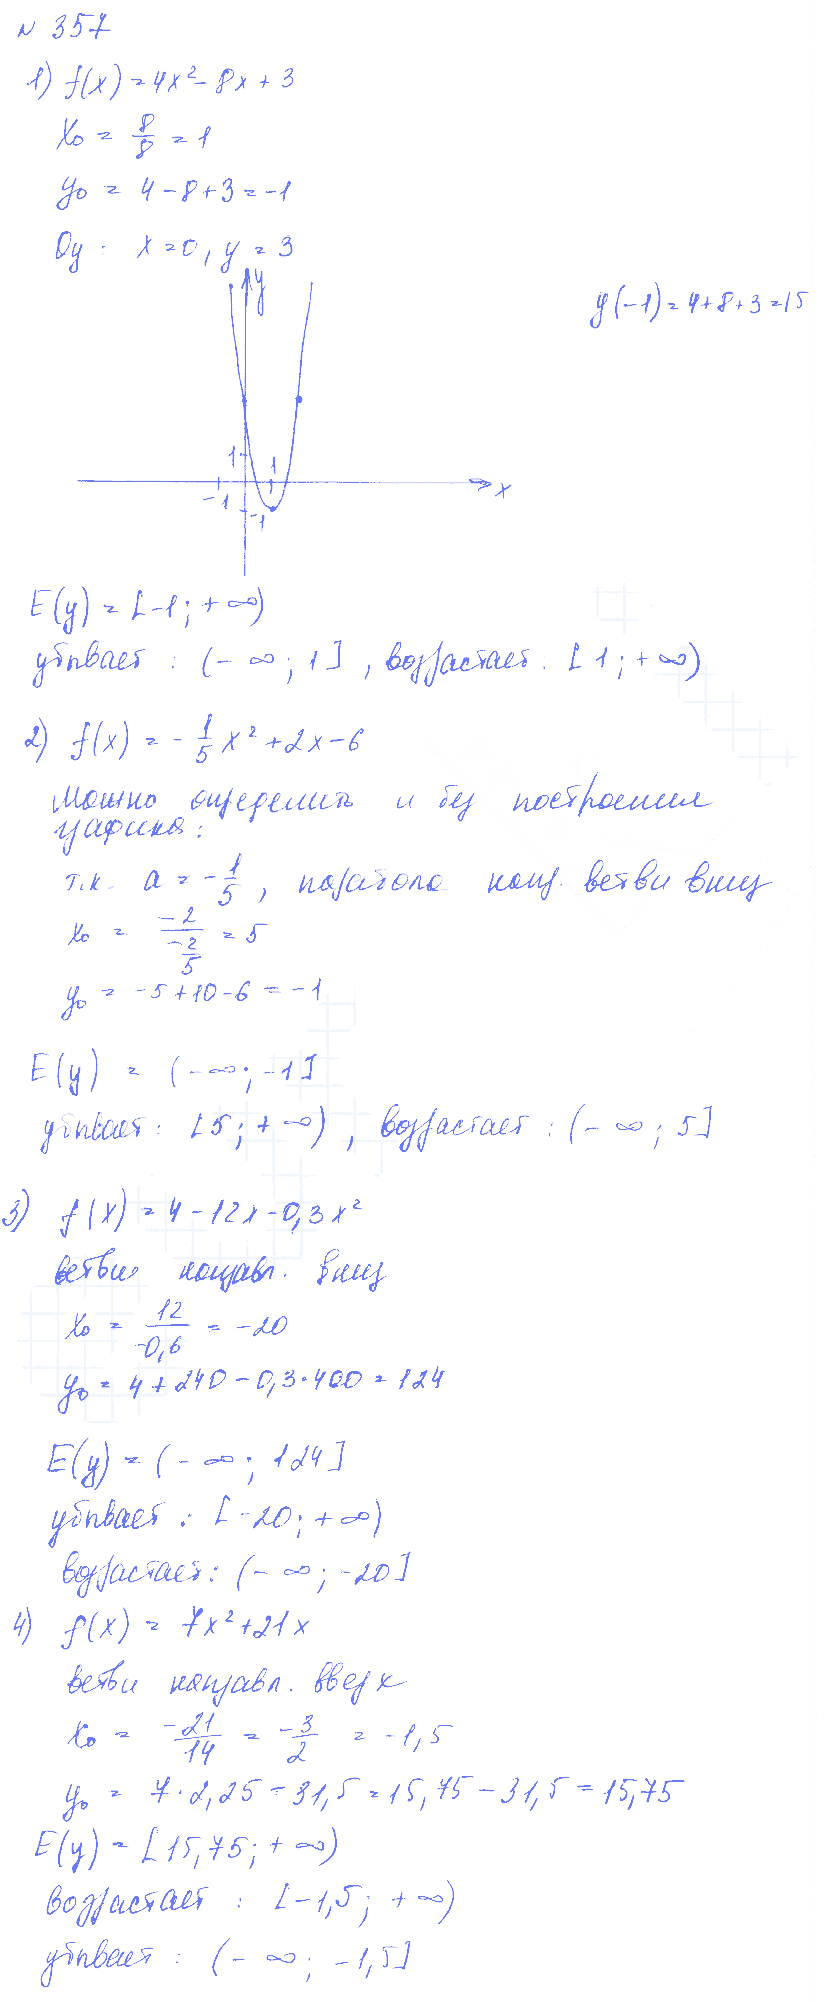 № 357
1) f(x) = 4x² - 8x + 3
x₀ = 8/8 = 1
y₀ = 4 - 8 + 3 = -1
Oy: x = 0, y = 3
y
y(-1) = 4 + 8 + 3 = 15
1
1
-1
-1
x
E(y) = [-1; +∞)
убывает: (-∞; 1], возрастает: [1; +∞)
2) f(x) = -1/5 x² + 2x - 6
Можно определить и без построения
графика:
т.к. a = -1/5, парабола напр. ветви вниз
x₀ = -2/(-2/5) = 5
y₀ = -5 + 10 - 6 = -1
E(y) = (-∞; -1]
убывает: [5; +∞), возрастает: (-∞; 5]
3) f(x) = 4 - 12x - 0,3x²
ветви направл. вниз
x₀ = 12/-0,6 = -20
y₀ = 4 + 240 - 0,3·400 = 124
E(y) = (-∞; 124]
убывает: [-20; +∞)
возрастает: (-∞; -20]
4) f(x) = 7x² + 21x
ветви направл. вверх
x₀ = -21/14 = -3/2 = -1,5
y₀ = 7·2,25 - 31,5 = 15,75 - 31,5 = 15,75
E(y) = [15,75; +∞)
возрастает: [-1,5; +∞)
убывает: (-∞; -1,5]